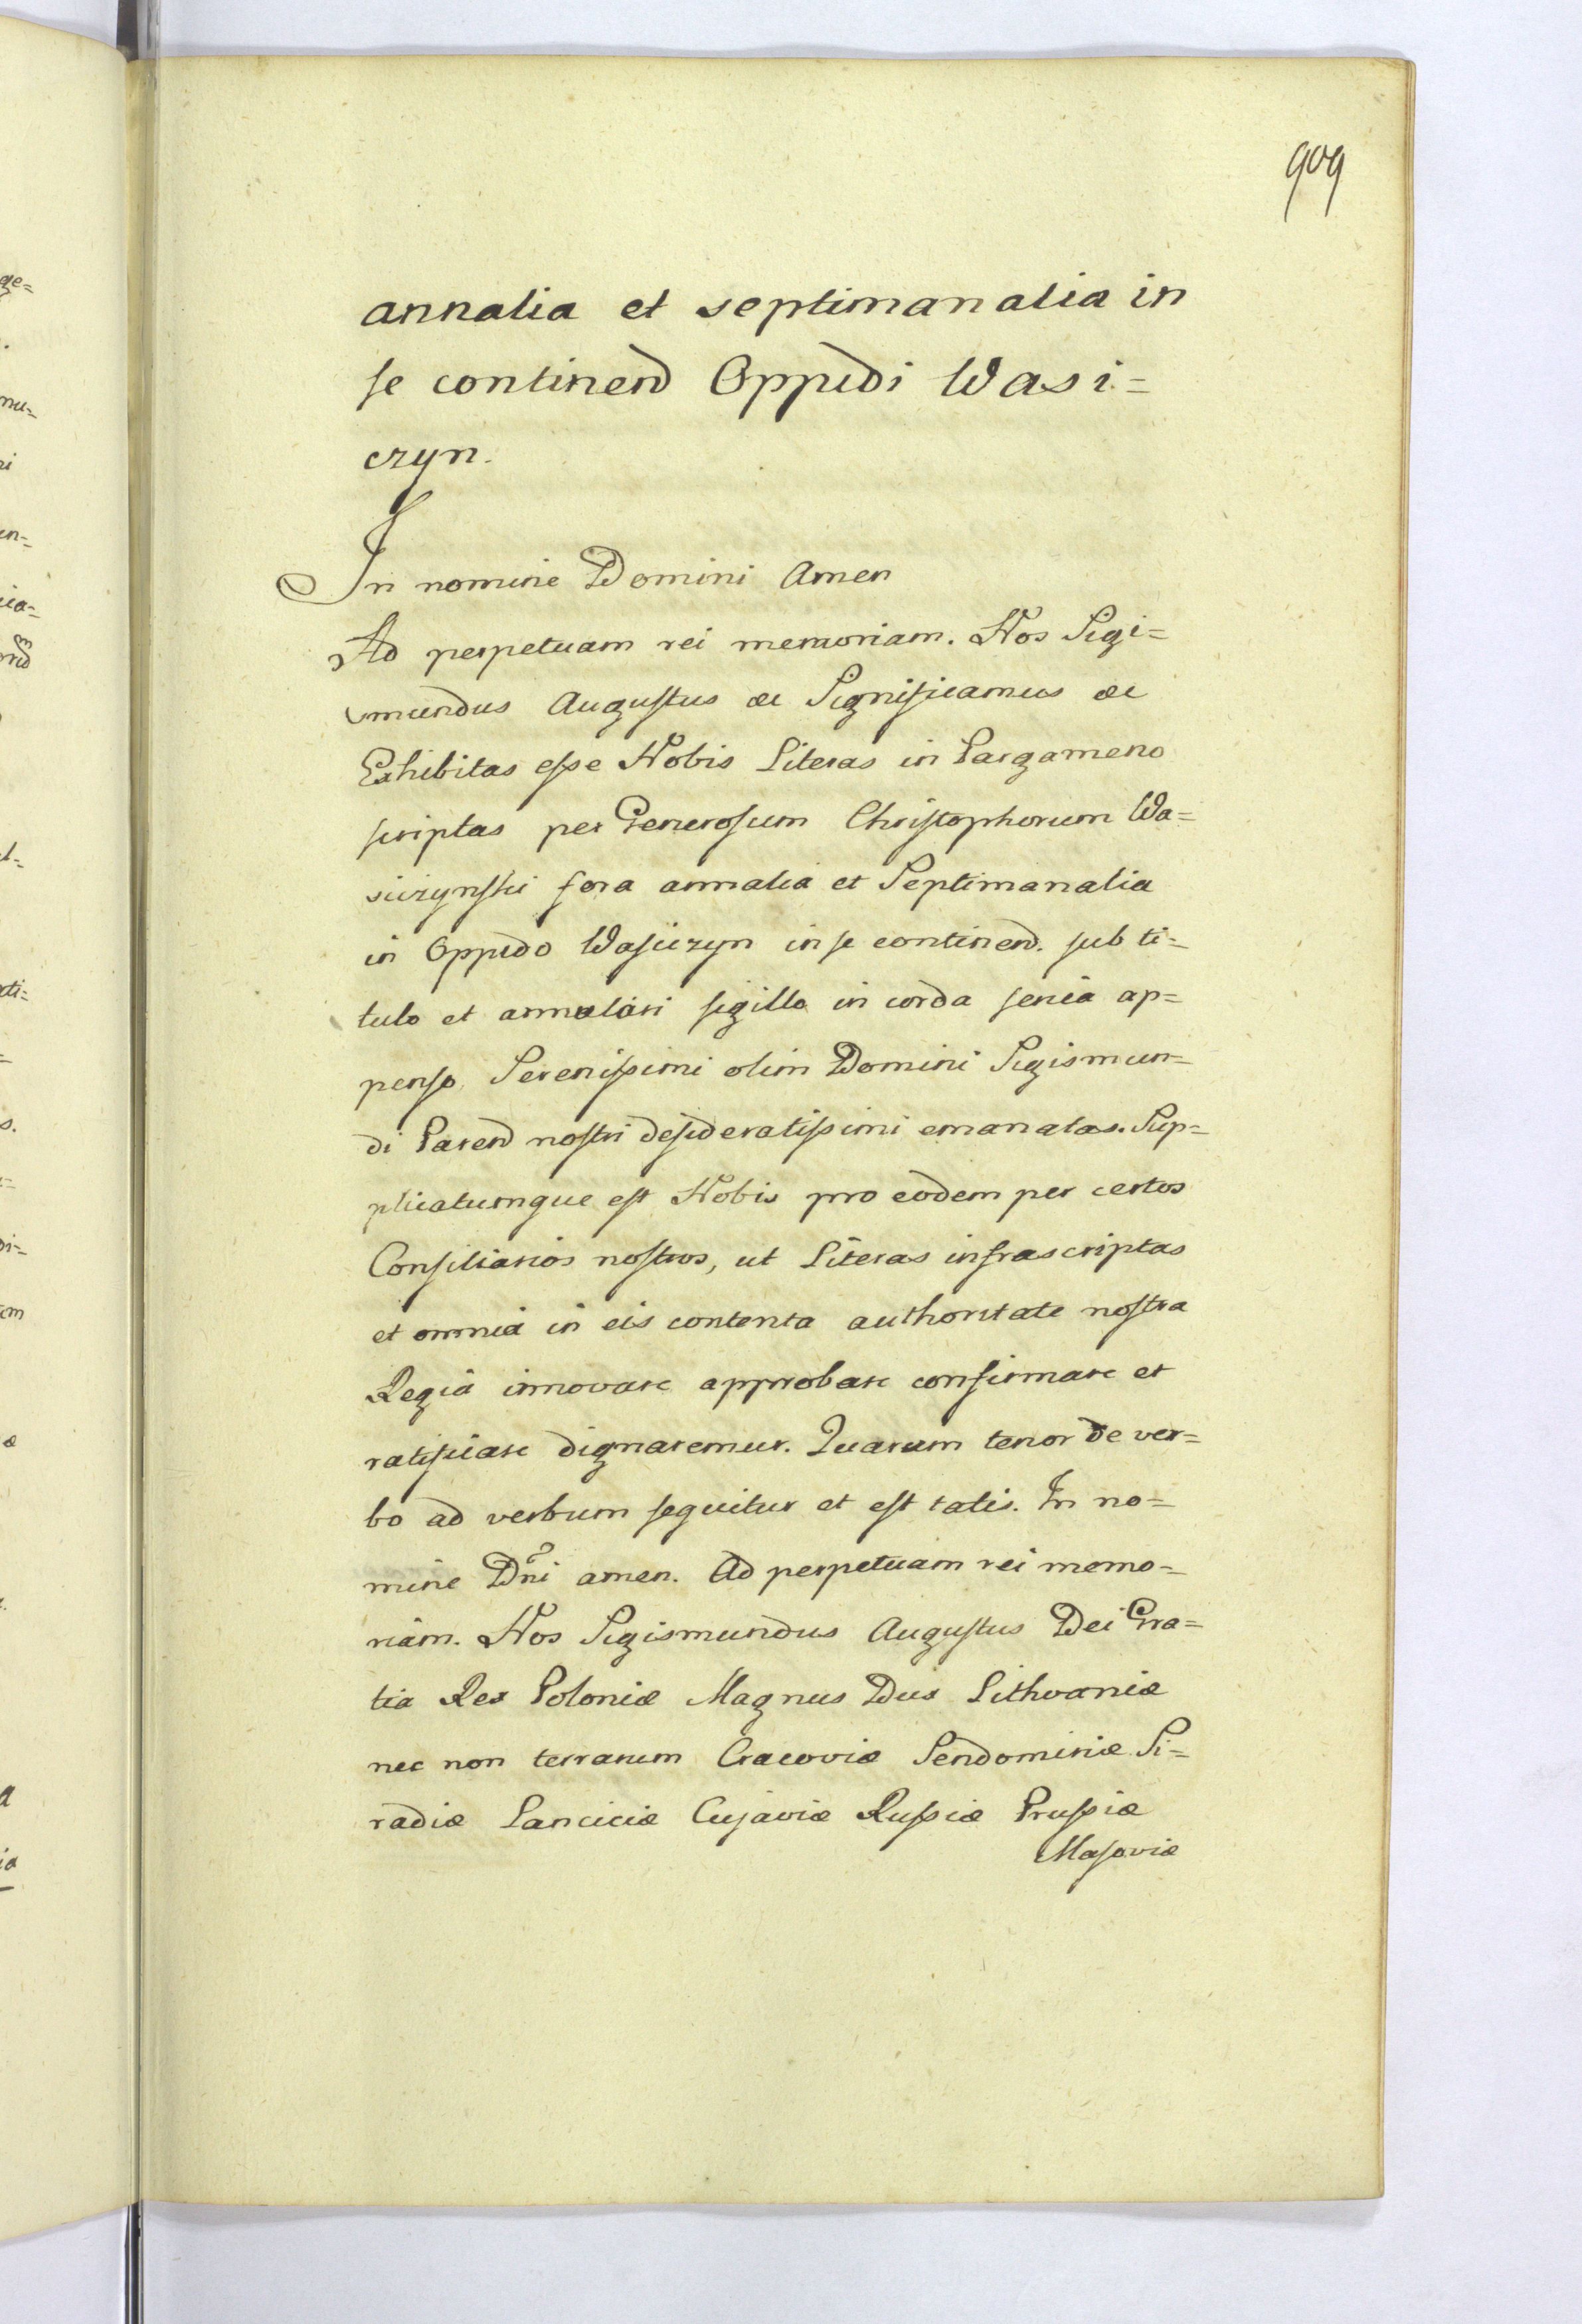 909
annalia et septimanalia in
se continend Oppidi Wasi=
czyn.
In nomine Domini Amen
Ad perpetuam rei memoriam. Nos Sigi=
smundus Augustus &c Significamus &c
Exhibitas esse Nobis Literas in Pargameno
scriptas per Generosum Christophorum Wa=
siczynski fora annalia et Septimanalia
in Oppido Wasiczyn in se continend. sub ti=
tulo et annulari sigillo in corda sericâ ap=
penso, Serenissimi olim Domini Sigismun=
di Parend nostri desideratissimi emanatas. Sup=
plicatumque est Nobis pro eodem per certos
Consiliarios nostros, ut Literas infrascriptas
et omnia in eis contenta authoritate nostra
Regiâ innovare approbare confirmare et
ratificare dignaremur. Quarum tenor de ver=
bo ad verbum sequitur et est talis. In no=
mine Dñi amen. Ad perpetuam rei memo=
riam. Nos Sigismundus Augustus Dei Gra=
tia Rex Poloniæ Magnus Dux Lithvaniæ
nec non terrarum Cracoviæ Sendomiriæ Si=
radiæ Lanciciæ Cujaviæ Russiæ Prussiæ
Masoviæ